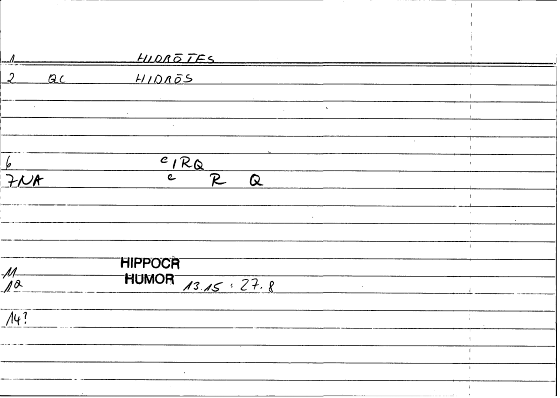 1 HIDRŌTES
2 QC HIDRŌS
6 c IRQ
7NA c R Q
HIPPOCR
11 HUMOR
12 13.15 : 27.8
14?